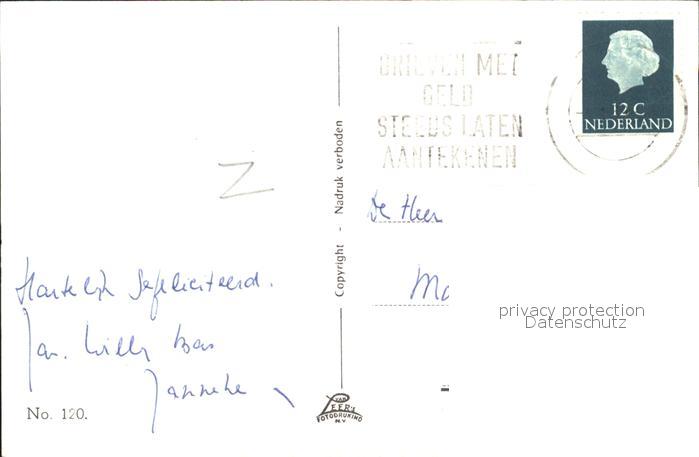 BRIEVEN MET
GELD
STEEDS LATEN
AANTEKENEN
12 C
NEDERLAND
Copyright - Nadruk verboden
Z
De Heer
Hartelijk Gefeliciteerd.
Jan. Willy Bas
Janneke
No. 120.
VAN
LEER'S
FOTODRUKIND
N.V.
privacy protection
Datenschutz